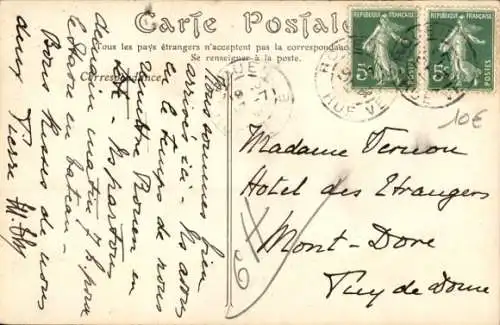 Carte Postale
Tous les pays étrangers n'acceptent pas la correspondance
Se renseigner à la poste.
Correspondance
REPUBLIQUE FRANÇAISE
5c
POSTES
REPUBLIQUE FRANÇAISE
5c
POSTES
10€
Madame Vernon
Hotel des Etrangers
Mont-Dore
Puy de Dome
Nous sommes bien
arrivés ici - Nous avons
eu le temps de
Rouen en
- Ns partons
demain matin 7h pour
le Havre en bateau -
Bons baisers de nous
deux Pierre